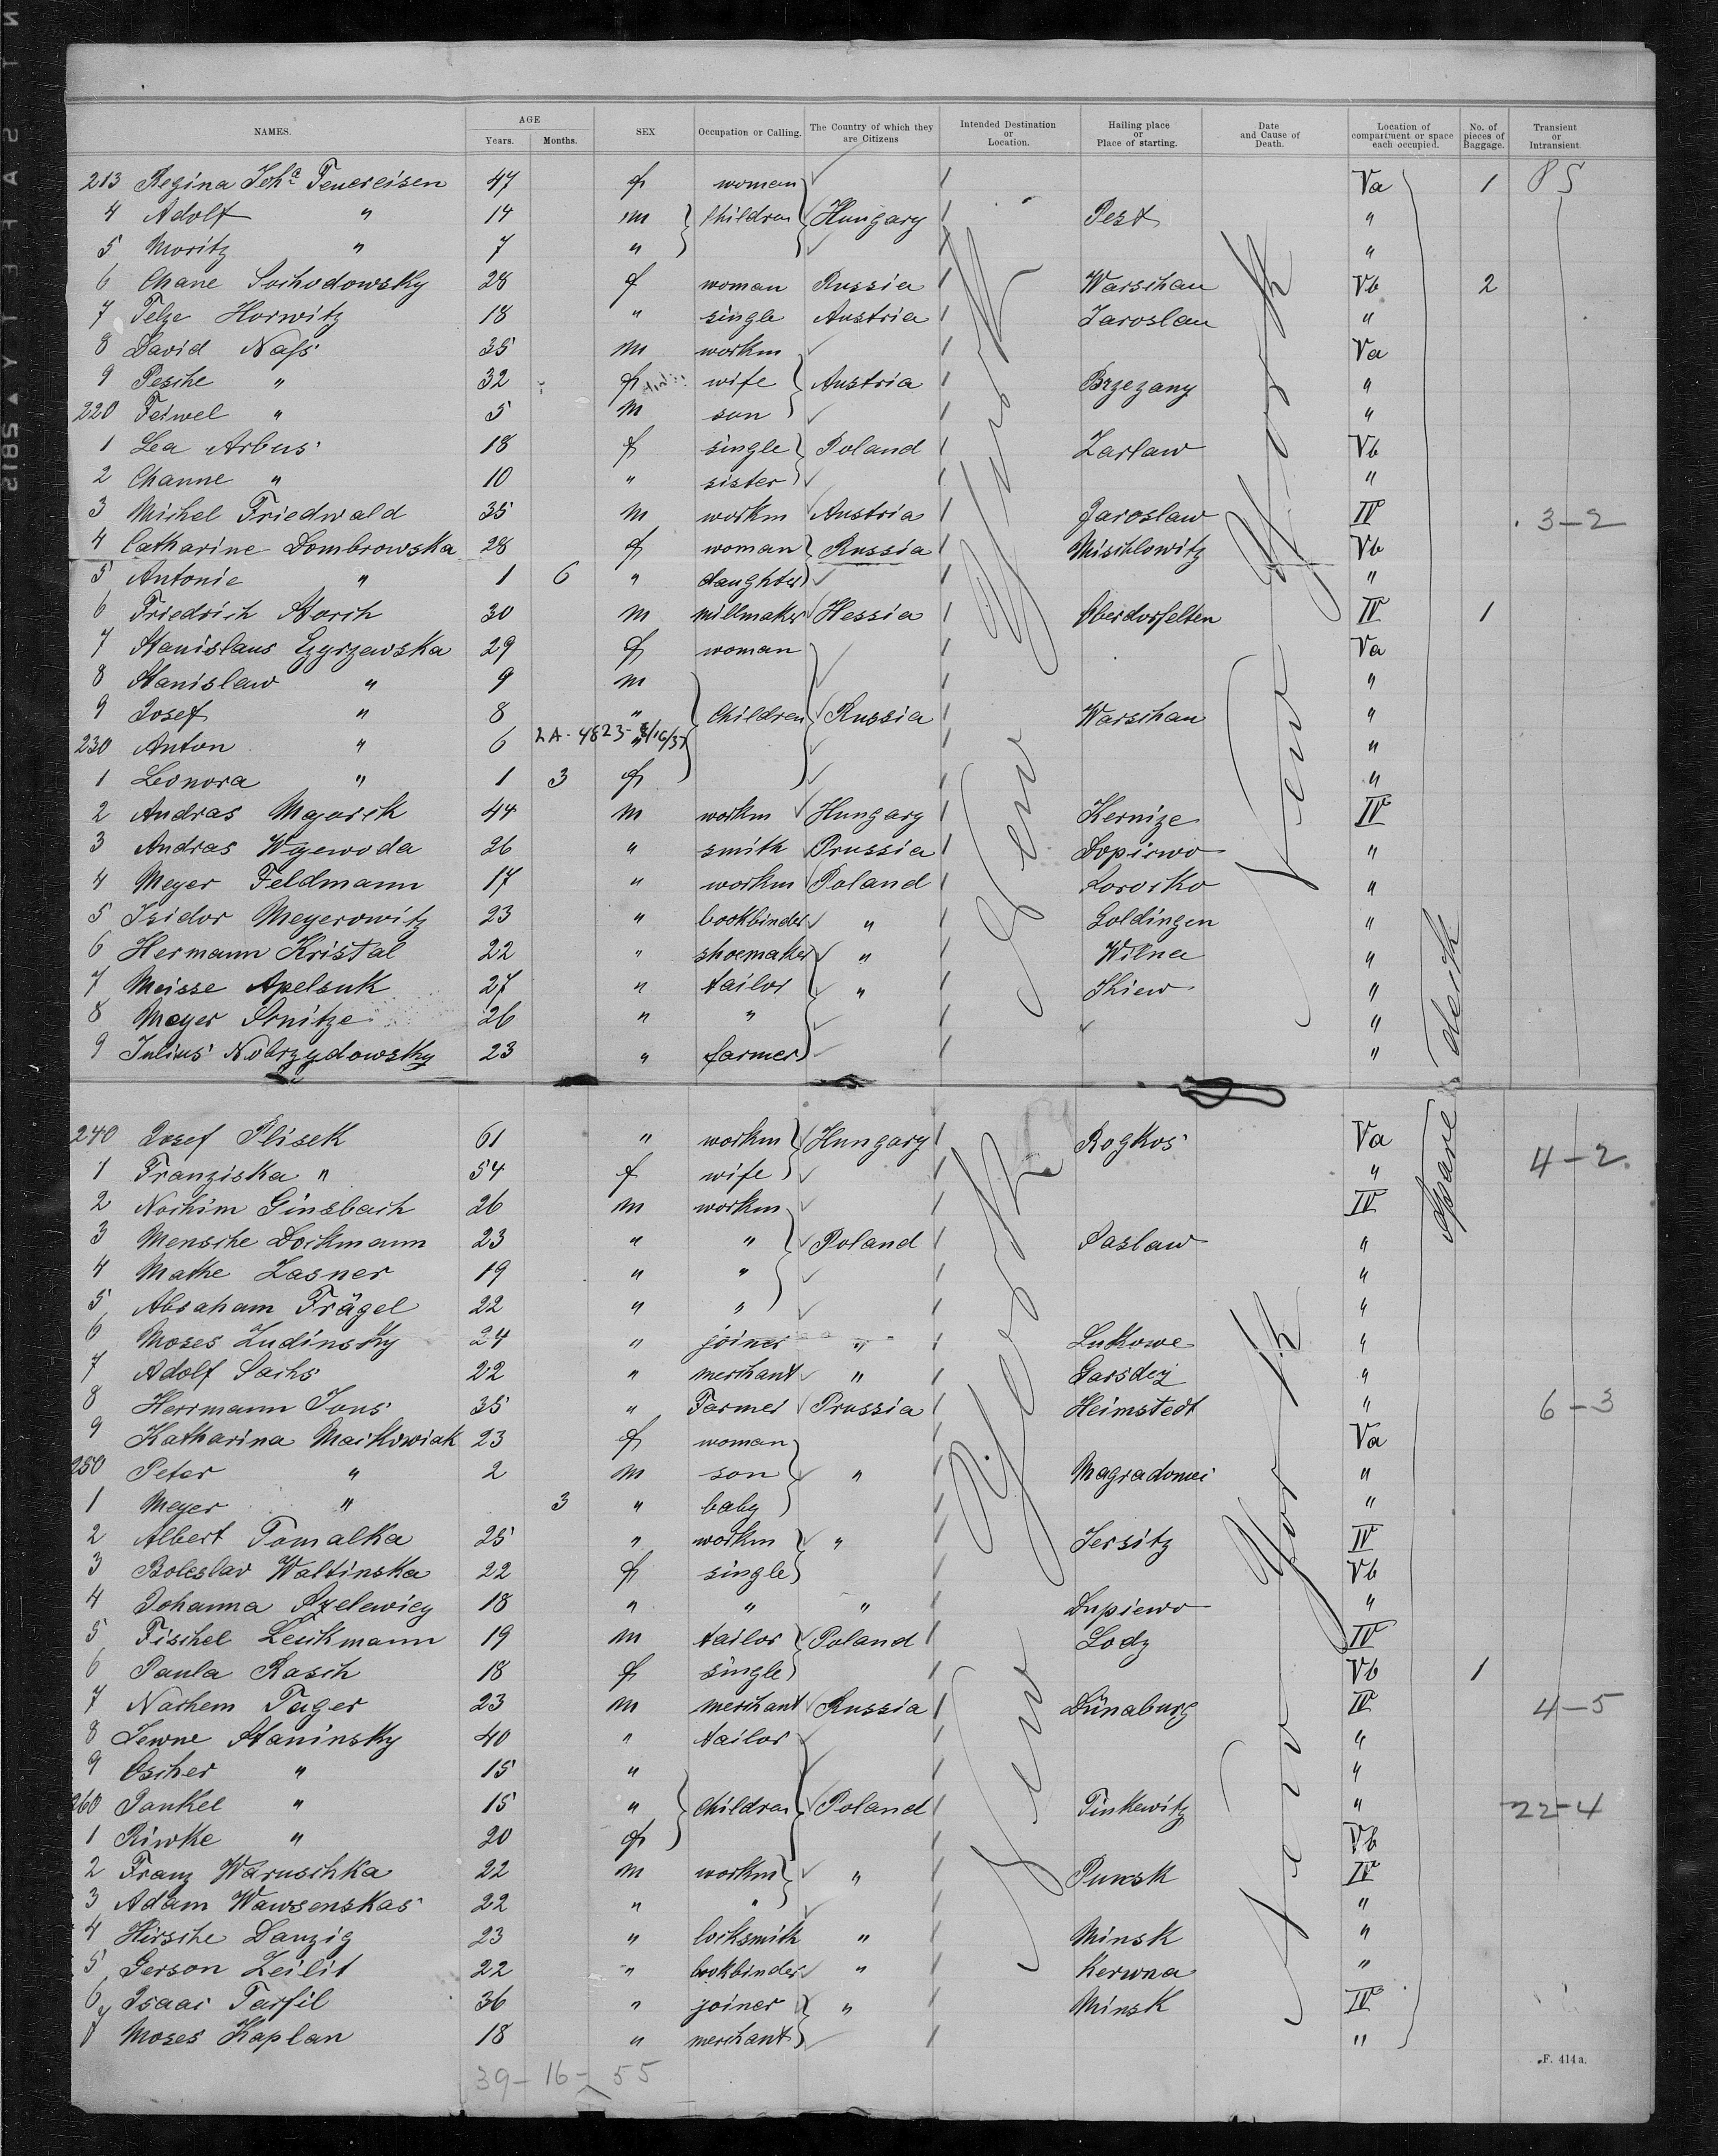 NAMES. AGE Years. Months. SEX Occupation or Calling. The Country of which they are Citizens Intended Destination or Location. Hailing place or Place of starting. Date and Cause of Death. Location of compartment or space each occupied. No. of pieces of Baggage. Transient or Intransient.
213 Regina Feuereisen 47 f woman Va 1 85
4 Adolf " 14 m Children Hungary Pest "
5 Moritz " 7 " "
6 Chane Sochodowsky 28 f woman Russia Warschau Vb 2
7 Felze Horwitz 18 " single Austria Jaroslau "
8 David Nass 35 m workm Va
9 Pesche " 32 f wife Austria Brzezany "
220 Feiwel " 5 m son "
1 Lea Arbus 18 f single Poland Zarlaw Vb
2 Channe " 10 " sister "
3 Michel Friedwald 35 m workm Austria Jaroslaw IV 3-2
4 Catharine Dombrowska 28 f woman Russia Mischlowitz Vb
5 Antonie " 1 6 " daughter "
6 Friedrich Storch 30 m millmaker Hessia Oberdorfelten IV 1
7 Stanislaus Czyrzewska 29 f woman Va
8 Stanislaw " 9 m "
9 Josef " 8 " Children Russia Warschau "
230 Anton " 6 2A-4823- "
1 Leonora " 1 3 f "
2 Andras Majorek 44 m workm Hungary Kernize IV
3 Andras Wyewoda 26 " smith Prussia Dopiewo "
4 Meyer Feldmann 17 " workm Poland Lorosko "
5 Isidor Meyerowitz 23 " bookbinder " Goldingen "
6 Hermann Kristal 22 " shoemaker " Wilna "
7 Meisse Apelsuk 27 " tailor " Skiew "
8 Meyer Srnitze 26 " " "
9 Julius Nobrzydowsky 23 " farmer "
240 Josef Plisek 61 " workm Hungary Rogkos Va 4-2.
1 Franziska " 54 f wife "
2 Nochim Ginsbach 26 m workm IV
3 Mensche Dockmann 23 " " Poland Saslaw "
4 Mathe Lasner 19 " " "
5 Abraham Frägel 22 " " "
6 Moses Ludinsky 24 " joiner " Lukowe "
7 Adolf Sachs 22 " merchant " Garsdey "
8 Herrmann Jons 35 " Farmer Prussia Heimstedt " 6-3
9 Katharina Maikowiak 23 f woman Va
250 Peter " 2 m son " Magradowei "
1 Meyer " 3 " baby "
2 Albert Tomalka 25 " workm " Jersitz IV
3 Boleslav Waltinska 22 f single Vb
4 Johanna Szelewiey 18 " " " Dupiewo "
5 Fischel Leukmann 19 m tailor Poland Lodz IV
6 Paula Rasch 18 f single Vb 1
7 Nachem Tager 23 m merchant Russia Dünaburg IV 4-5
8 Jewne Staninsky 40 " tailor "
9 Oscher " 15 " "
260 Jankel " 15 " Children Poland Pinkewitz " 22-4
1 Riwke " 20 f Vb
2 Franz Waruschka 22 m workm " Punsk IV
3 Adam Wawsenskas 22 " " "
4 Hirsche Danzig 23 " locksmith " Minsk "
5 Gerson Zeilit 22 " bookbinder " Kerwna "
6 Isaac Tarfil 36 " joiner " Minsk IV
7 Moses Kaplan 18 " merchant "
New York
New York
New York
New York
39-16-55
F. 414a.